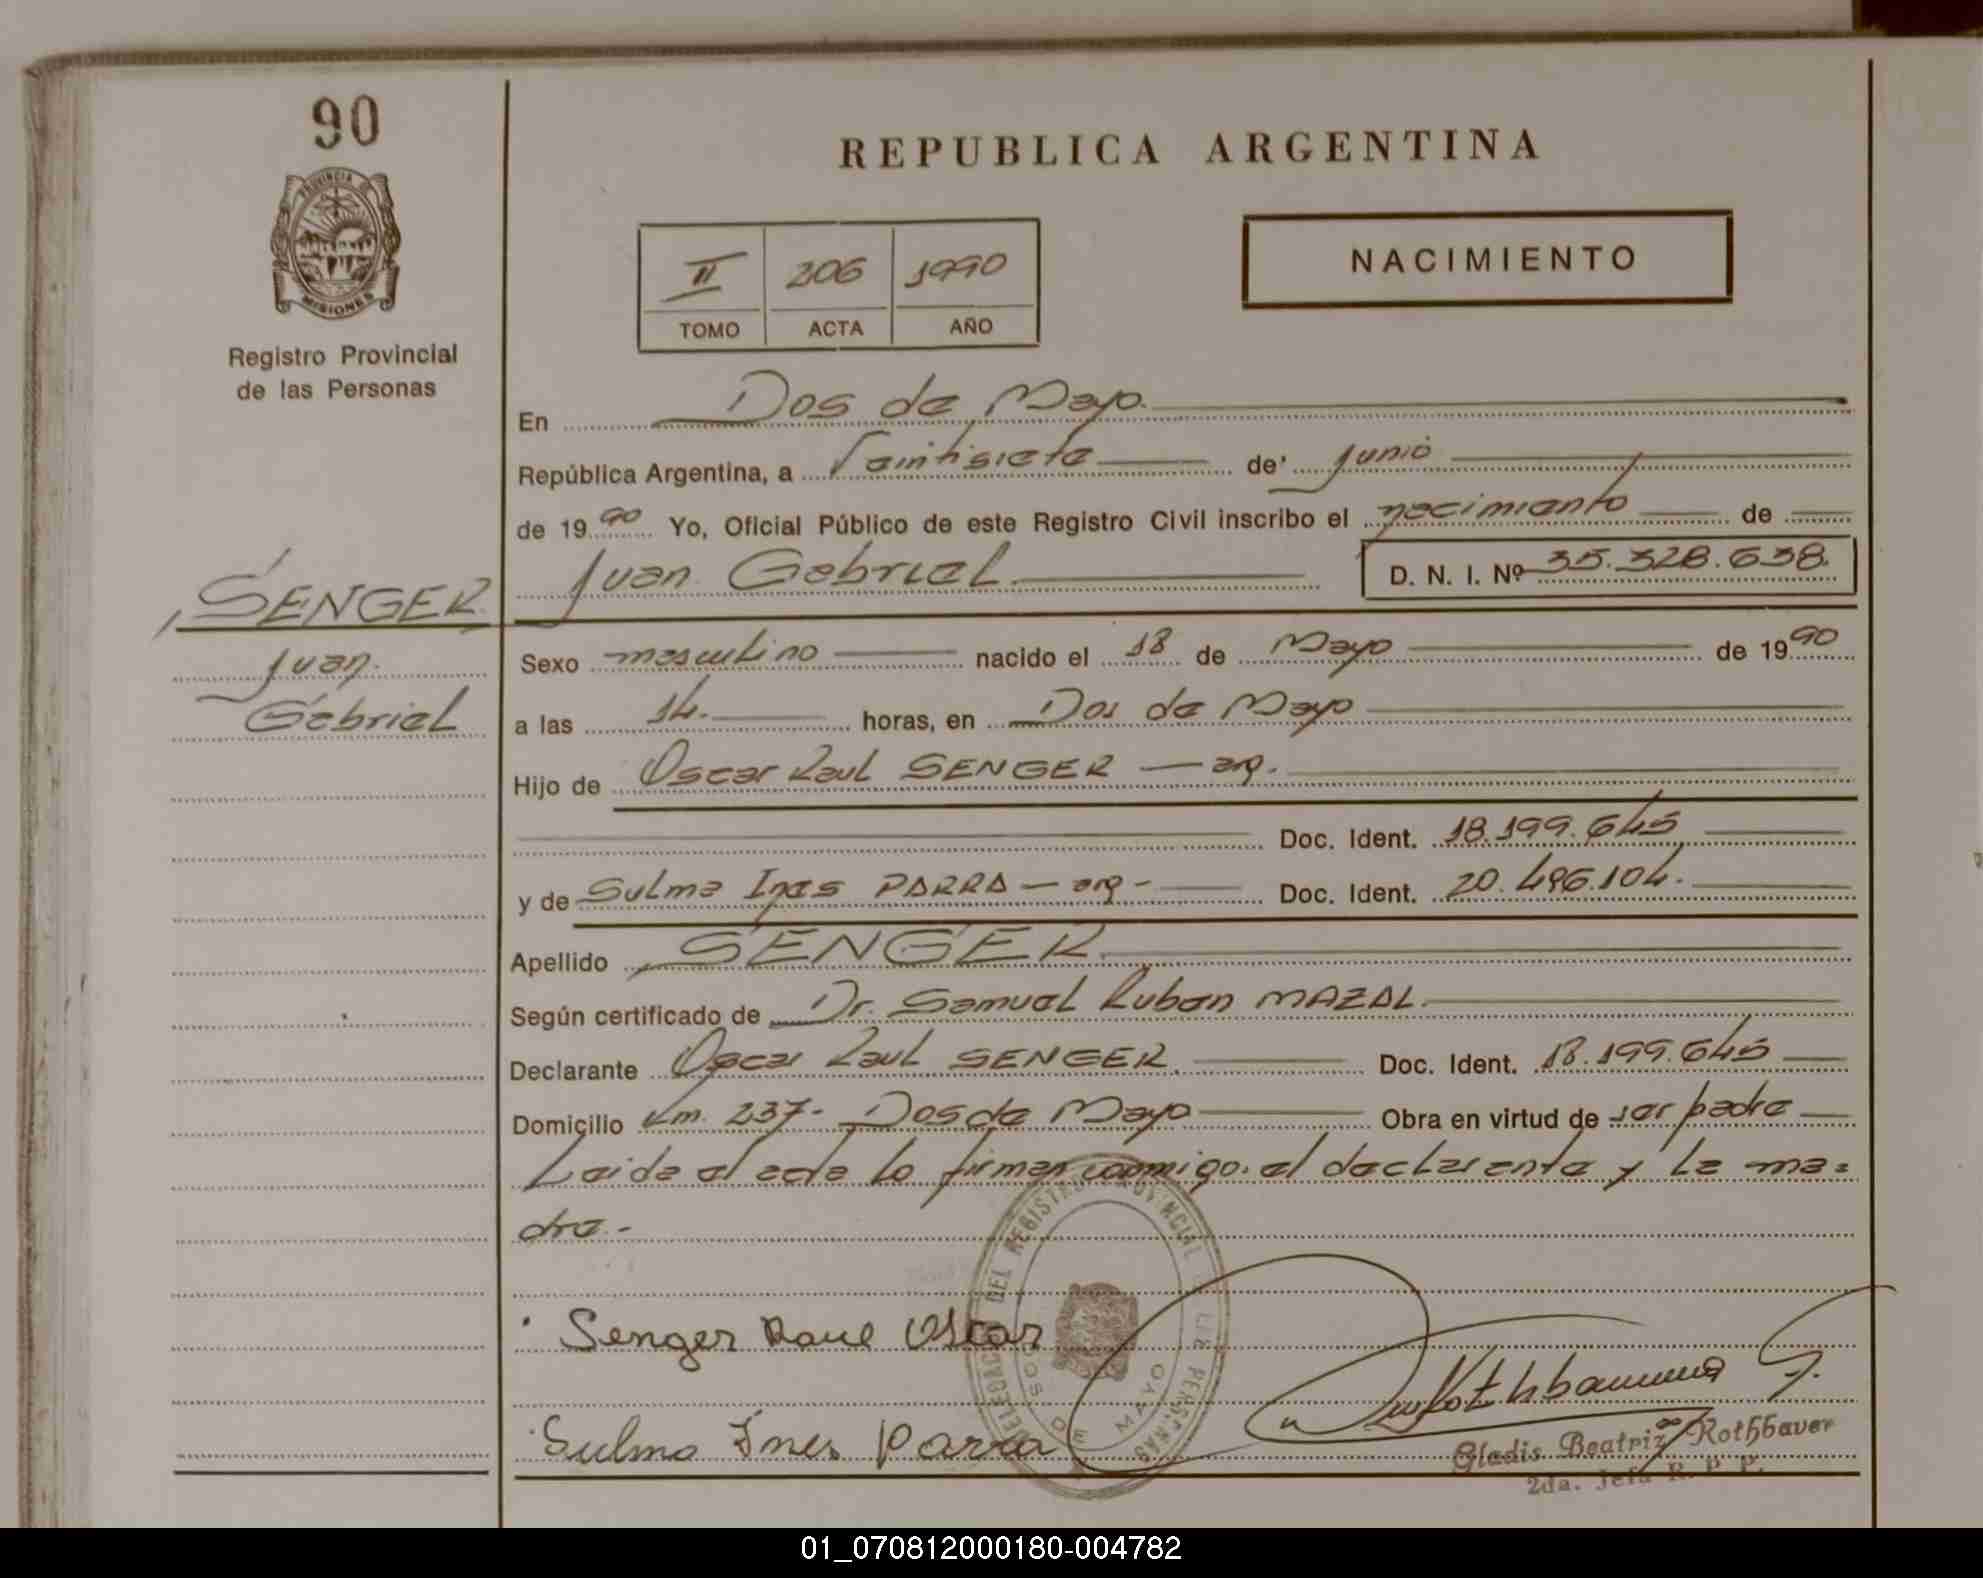 90
REPUBLICA ARGENTINA
PROVINCIA DE
MISIONES
Registro Provincial
de las Personas
II 206 1990
TOMO ACTA AÑO
NACIMIENTO
En Dos de Mayo.
República Argentina, a Veintisiete de junio
de 1990 Yo, Oficial Público de este Registro Civil inscribo el nacimiento de
Juan Gabriel D. N. I. Nº 35.328.638.
SENGER
Juan
Gabriel
Sexo masculino nacido el 18 de Mayo de 1990
a las 14. horas, en Dos de Mayo
Hijo de Oscar Raul SENGER — arg.
Doc. Ident. 18.199.645
y de Sulma Ines PARRA — arg - Doc. Ident. 20.496.104.
Apellido SENGER
Según certificado de Dr. Samuel Ruben MAZAL
Declarante Oscar Raul SENGER. Doc. Ident. 18.199.645
Domicilio Km. 237- Dos de Mayo Obra en virtud de ser padre
Leida el acta lo firman conmigo: el declarante y la ma=
dre.-
DELEGACION DEL REGISTRO PROVINCIAL DE LAS PERSONAS
DOS DE MAYO
Senger Raul Oscar
Sulma Ines Parra
Gladis Beatriz Rothbaver
2da. Jefa R. P. P.
01_070812000180-004782